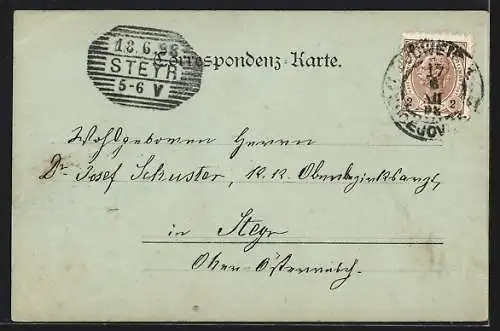 18.6.98
STEYR
5-6 V
Correspondenz-Karte.
17
6
98
2 2
Wohlgeboren Herrn
Dr Josef Schuster, K. K. Oberbezirksarzt,
in Steyr
Ober-Österreich.